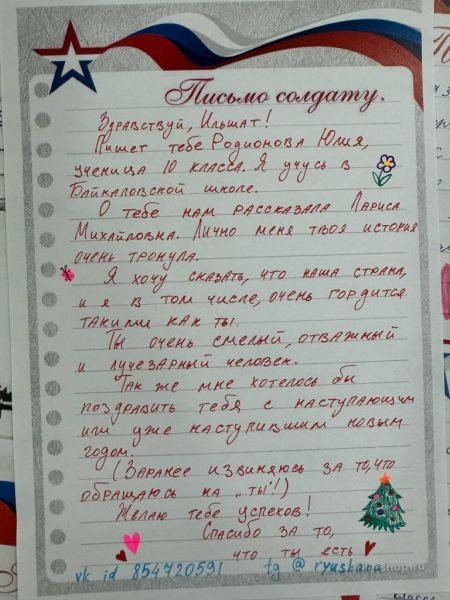 Письмо солдату.
Здравствуй, Ильшат!
Пишет тебе Родионова Юлия,
ученица 10 класса. Я учусь в
Байкаловской школе.
О тебе нам рассказала Лариса
Михайловна. Лично меня твоя история
очень тронула.
Я хочу сказать, что наша страна,
и я в том числе, очень гордится
такими как ты.
Ты очень смелый, отважный
и лучезарный человек.
Так же мне хотелось бы
поздравить тебя с наступающим
или уже наступившим новым
годом.
(Заранее извиняюсь за то, что
обращаюсь на „ты"!)
Желаю тебе успехов!
Спасибо за то,
что ты есть
vk id 854720591 tg @ ryushana